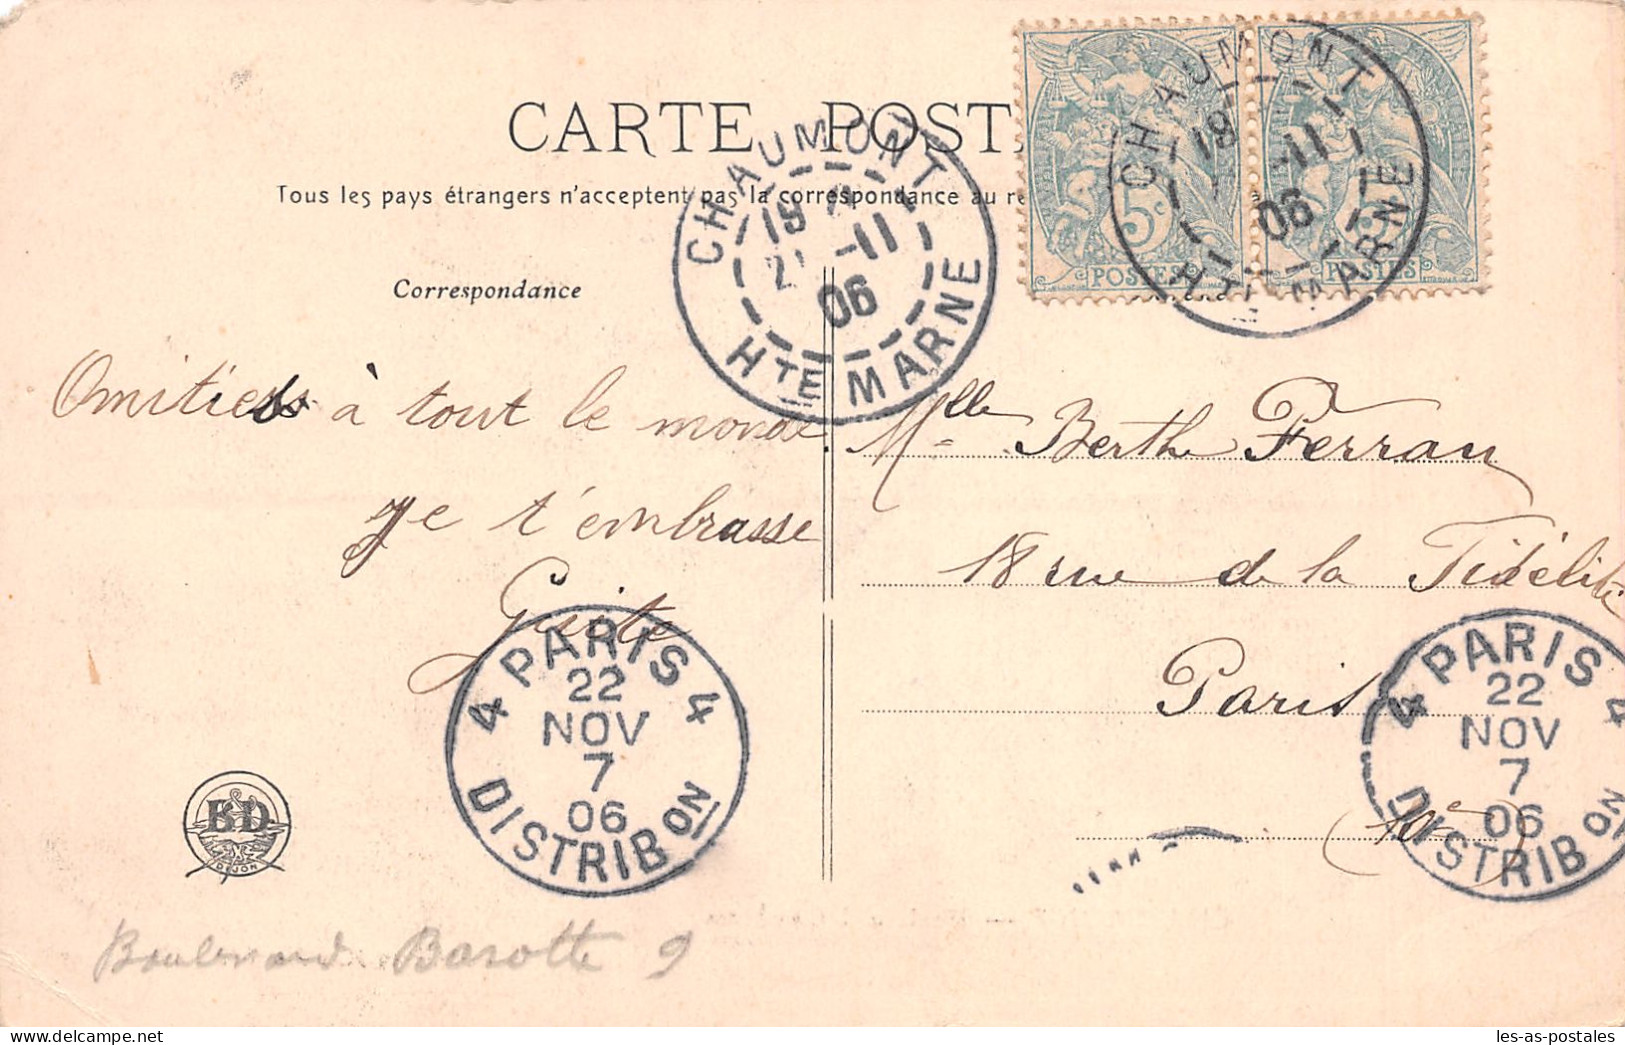 CARTE POST
Tous les pays étrangers n'acceptent pas la correspondance au re
Correspondance
CHAUMONT
19
21 -11
06
HTE MARNE
CHAUMONT
19
-11
06
HTE MARNE
5c
POSTES
POSTES
Amitiés à tout le monde
Je t'embrasse
Mlle Berthe Ferran
18 rue de la Fidélité
Paris
4 PARIS 4
22
NOV
7
06
DISTRIBON
4 PARIS 4
22
NOV
7
06
DISTRIBON
B&D
DIJON
Boulevard Barotte 9
les-as-postales